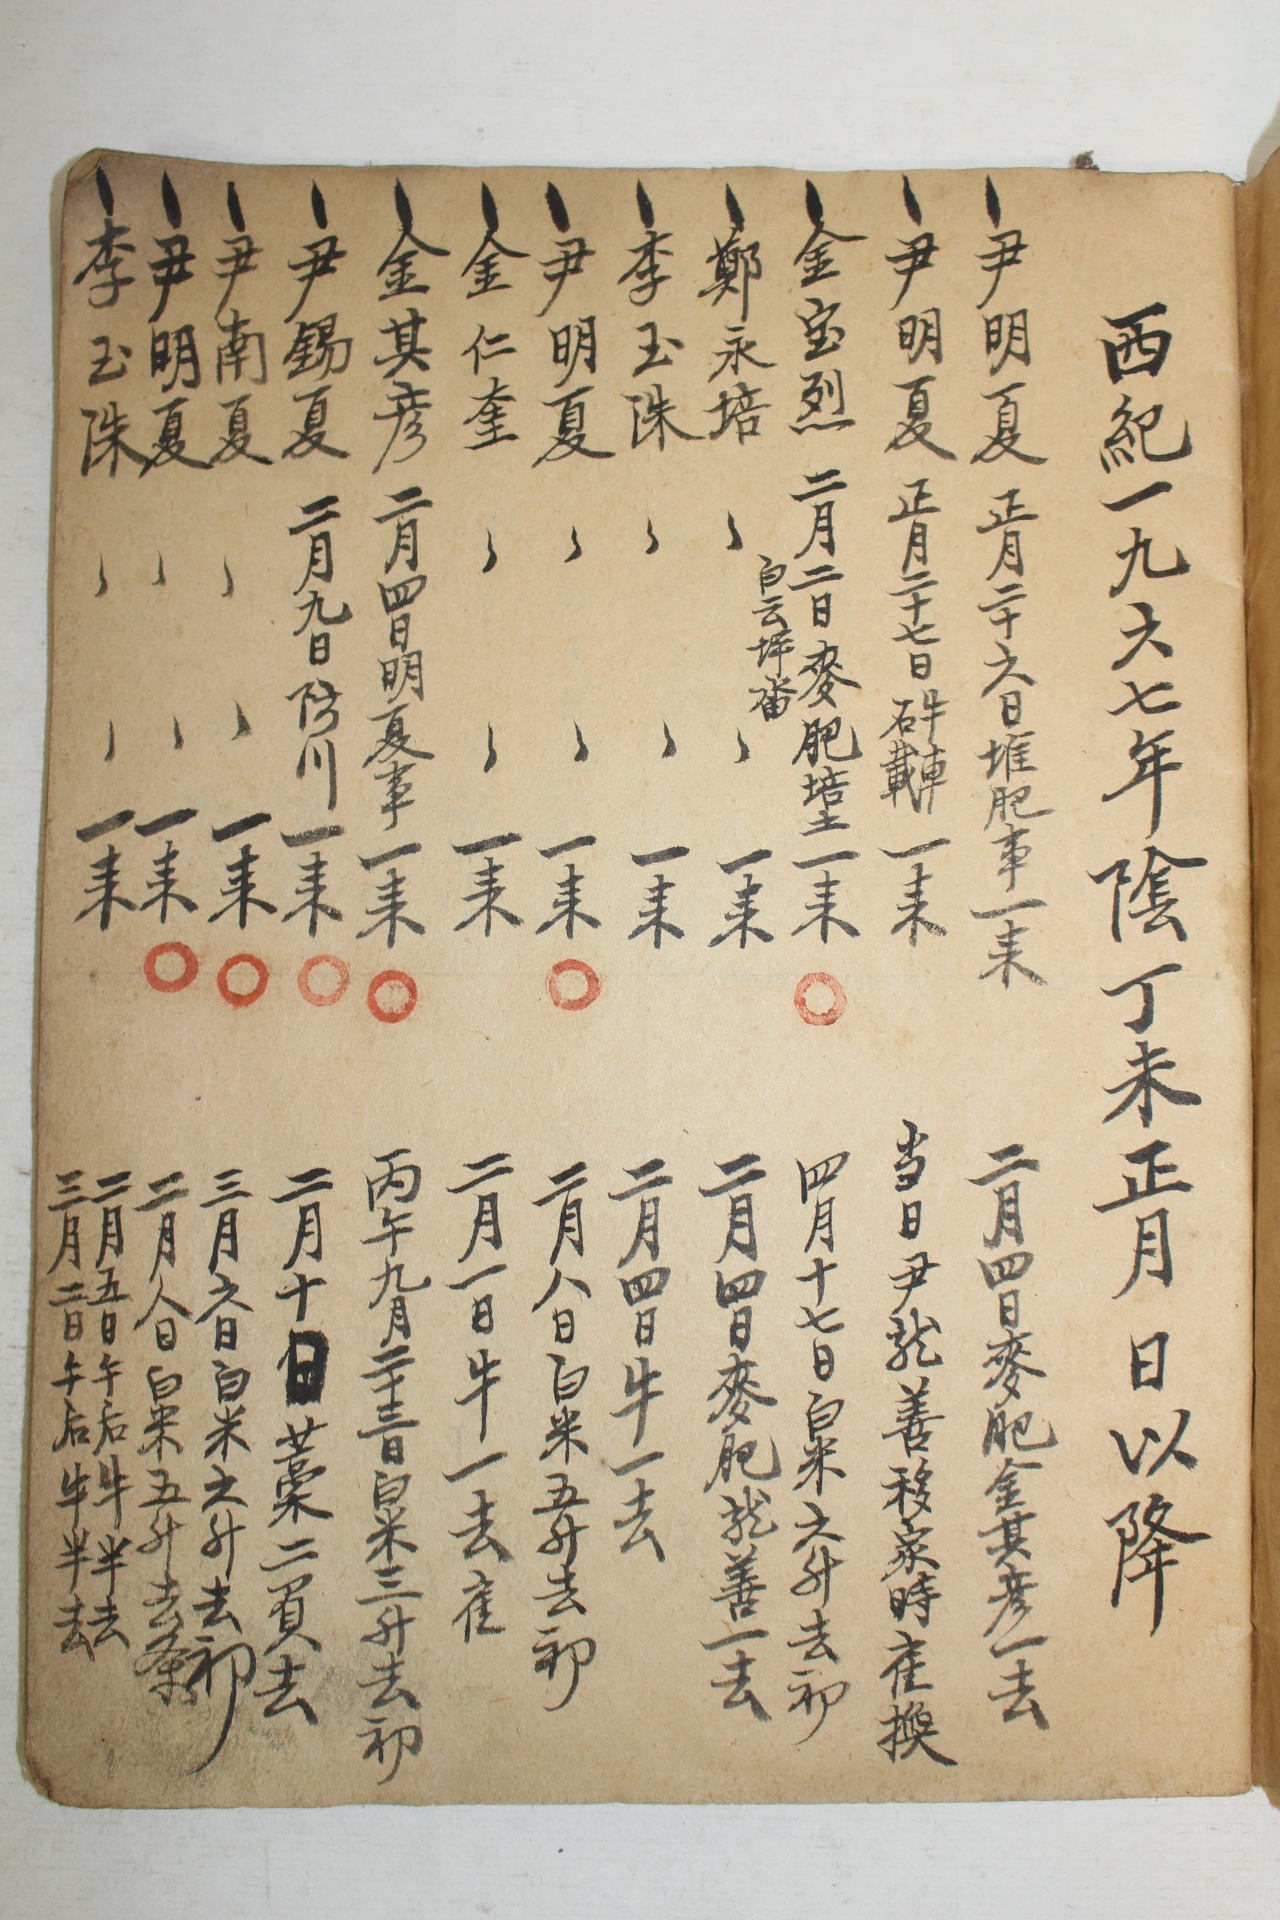 西紀一九六七年陰丁未正月 日以降
尹明夏 正月二十六日堆肥事一来 二月四日麥肥金其彦一去
尹明夏 正月二十七日牛車石載一来 当日尹龍善移家時雇換
金宝烈 二月二日麥肥培土一来 四月十七日白米六升去初
白云坪畓
鄭永培 〃 〃 一来 二月四日麥肥龍善一去
李玉洙 〃 〃 一来 二月四日牛一去
尹明夏 〃 〃 一来 二月八日白米五升去初
金仁奎 〃 〃 一来 二月一日牛一去雇
金其彦 二月四日明夏事一来 丙午九月二十三日白米三升去初
尹錫夏 二月九日防川一来 二月十日藁二負去
尹南夏 〃 〃 一来 三月六日白米六升去初
尹明夏 〃 〃 一来 二月八日白米五升去条
李玉洙 〃 〃 一来 二月五日午后牛半去
三月二日午后牛半去